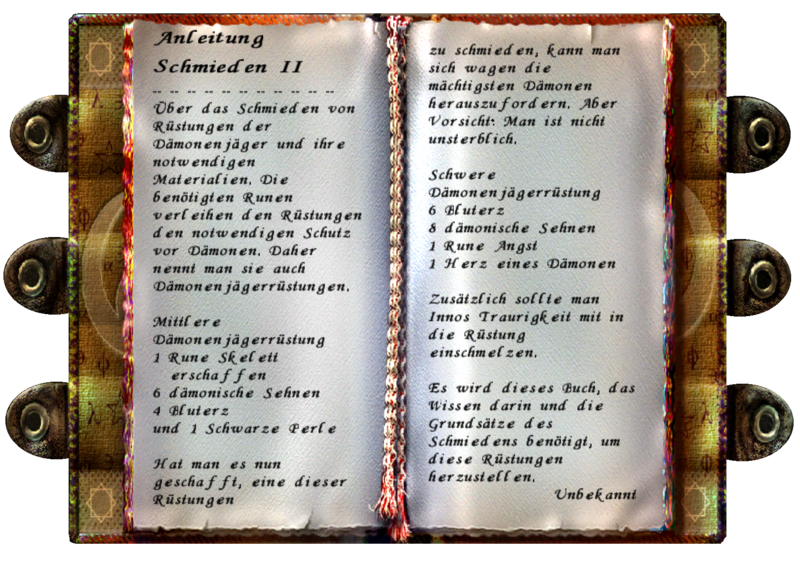 Anleitung
Schmieden II
-- -- -- -- -- -- -- -- -- -- --
Über das Schmieden von
Rüstungen der
Dämonenjäger und ihre
notwendigen
Materialien. Die
benötigten Runen
verleihen den Rüstungen
den notwendigen Schutz
vor Dämonen. Daher
nennt man sie auch
Dämonenjägerrüstungen.

Mittlere
Dämonenjägerrüstung
1 Rune Skelett
erschaffen
6 dämonische Sehnen
4 Bluterz
und 1 Schwarze Perle

Hat man es nun
geschafft, eine dieser
Rüstungen
zu schmieden, kann man
sich wagen die
mächtigsten Dämonen
herauszufordern. Aber
Vorsicht: Man ist nicht
unsterblich.

Schwere
Dämonenjägerrüstung
6 Bluterz
8 dämonische Sehnen
1 Rune Angst
1 Herz eines Dämonen

Zusätzlich sollte man
Innos Traurigkeit mit in
die Rüstung
einschmelzen.

Es wird dieses Buch, das
Wissen darin und die
Grundsätze des
Schmiedens benötigt, um
diese Rüstungen
herzustellen.
Unbekannt